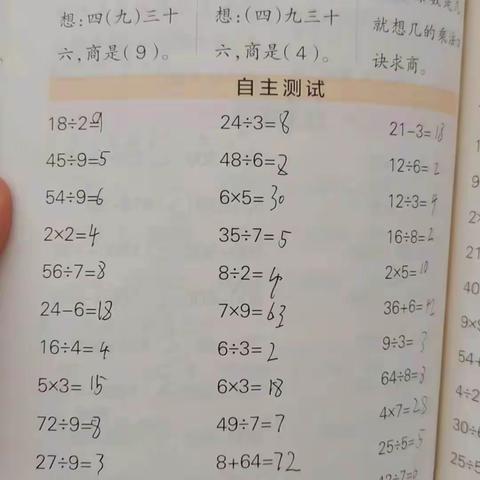 想:四(九)三十 想:(四)九三十
就想几的乘法口
六,商是(9)。 六,商是(4)。
诀求商。
自主测试
18÷2=9 24÷3=8 21-3=18
45÷9=5 48÷6=8 12÷6=2
54÷9=6 6×5=30 12÷3=4
2×2=4 35÷7=5 16÷8=2
56÷7=8 8÷2=4 2×5=10
24-6=18 7×9=63 36+6=42
16÷4=4 6÷3=2 9÷3=3
5×3=15 6×3=18 64÷8=8
72÷9=8 49÷7=7 4×7=28
27÷9=3 8+64=72 25÷5=5
42÷7=6